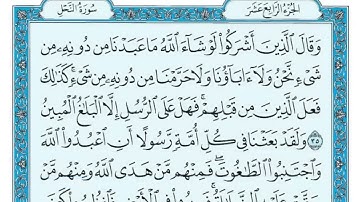 سُورَةُ النَّحْلِ الجُزْءُ الرَّابِعَ عَشَرَ
وَقَالَ الَّذِينَ أَشْرَكُوا۟ لَوْ شَآءَ ٱللَّهُ مَا عَبَدْنَا مِن دُونِهِۦ مِن
شَىْءٍ نَّحْنُ وَلَآ ءَابَآؤُنَا وَلَا حَرَّمْنَا مِن دُونِهِۦ مِن شَىْءٍ ۚ كَذَٰلِكَ
فَعَلَ ٱلَّذِينَ مِن قَبْلِهِمْ ۚ فَهَلْ عَلَى ٱلرُّسُلِ إِلَّا ٱلْبَلَٰغُ ٱلْمُبِينُ
٣٥ وَلَقَدْ بَعَثْنَا فِى كُلِّ أُمَّةٍ رَّسُولًا أَنِ ٱعْبُدُوا۟ ٱللَّهَ
وَٱجْتَنِبُوا۟ ٱلطَّٰغُوتَ ۖ فَمِنْهُم مَّنْ هَدَى ٱللَّهُ وَمِنْهُم مَّنْ